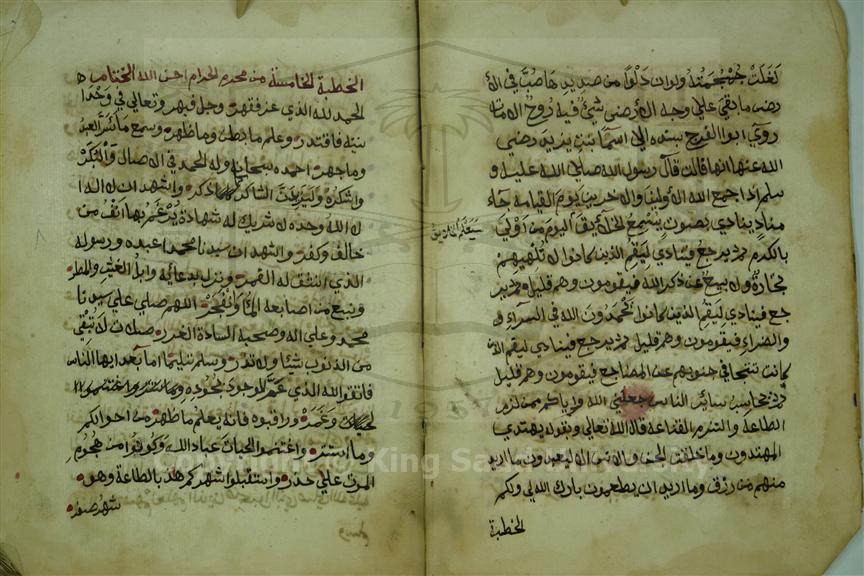 لغلت جمجمته ولو ان دلوا من صديد هاصب في الا
رض ما بقي علي وجه الارض شيئ فيه روح الا مات
روي ابوا الفرج بسنده الي اسما بنت يزيد رضي
الله عنها انها قالت قال رسول الله صلي الله عليه و
سلم اذا جمع الله الاولين والاخرين يوم القيامه جاء
مناد ينادي بصوت يسمع الخلائق اليوم من اولي
بالكرم ثم يرجع فينادي ليقم الذين كانوا لا تلهيهم
تجارة ولا بيع عن ذكر الله فيقومون وهم قليل ثم ير
جع فينادي ليقم الذين كانوا يحمدون الله في السراء و
والضراء فيقومون وهم قليل ثم يرجع فينادي ليقم الذ
كانت تتجافي جنوبهم عن المضاجع فيقومون وهم قليل
ثم يحاسب سائر الناس جعلني الله واياكم ممن لزم
الطاعة والتزم القناعة قال الله تعالي وبقوله يهتدي
المهتدون وما خلقت الجن والانس الا ليعبدون ما اريد
منهم من رزق وما اريد ان يطعمون بارك الله لي ولكم
الخطبة
الخطبة الخامسة من محرم الحرام احسن الله الختام
الحمد لله الذي عز فقهر وجل فبهر وتعالي في وحدا
نيته فاقتدر وعلم ما بطن وما ظهر وسمع ما اسر العبد
وما جهر احمده سبحانه وله الحمد في الاصال والبكر
واشكره وليزيدن الشاكر كما ذكر واشهد ان لا اله ا
لا الله وحده لا شريك له شهادة يرغم بها انف من
خالف وكفر واشهد ان سيدنا محمدا عبده ورسوله
الذي انشق له القمر ونزل بدعائه وابل الغيث والمطر
ونبع من اصابعه الماء وانفجر اللهم صلي علي سيدنا
محمد وعلي اله وصحبه السادة الغرر صلات لا تبقي
من الذنوب شيئا ولا تذر وسلم تسليما اما بعد ايها الناس
فاتقوا الله الذي عم الوجود بجوده
وغمر وراقبوه فانه يعلم ما ظهر من احوالكم
وما استتر واغتنموا الحياة عباد الله وكونوا من هجوم
الموت علي حذر واستقبلوا شهركم هذا بالطاعة وهو
شهر صفر
King Saud University
1957